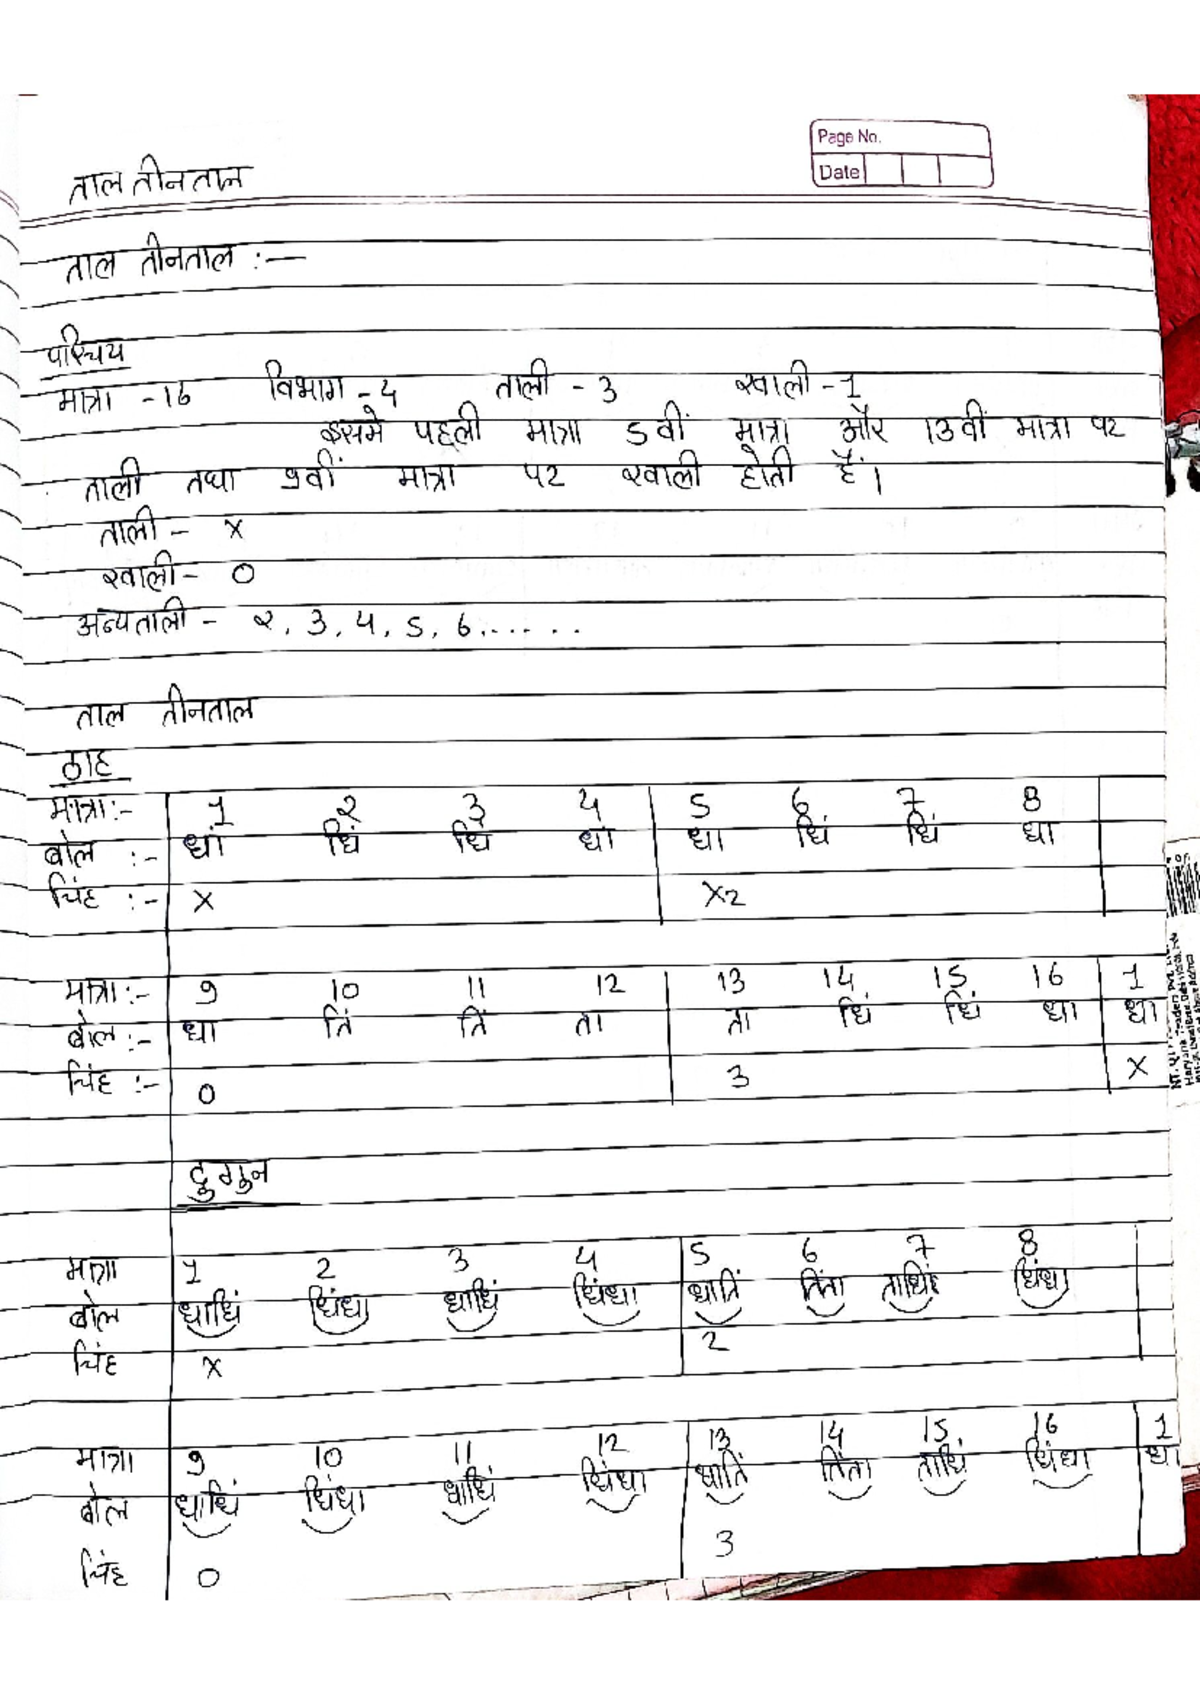 Page No.
Date
ताल तीनताल
ताल तीनताल :—
परिचय
मात्रा -16 विभाग -4 ताली - 3 खाली -1
इसमे पहली मात्रा 5वीं मात्रा और 13वीं मात्रा पर
ताली तथा 9वीं मात्रा पर खाली होती हैं।
ताली - x
खाली - 0
अन्यताली - २, 3, 4, 5, 6......
ताल तीनताल
ठाह
मात्रा:- 1 २ 3 4 5 6 7 8
बोल :- धा धिं धिं धा धा धिं धिं धा
चिंह :- x x2
मात्रा:- 9 10 11 12 13 14 15 16 1
बोल:- धा तिं तिं ता ता धिं धिं धा धा
चिंह :- 0 3 x
दुगुन
मात्रा 1 2 3 4 5 6 7 8
बोल धाधिं धिंधा धाधिं धिंधा धातिं तिंता ताधिं धिंधा
चिंह x 2
मात्रा 9 10 11 12 13 14 15 16 1
बोल धाधिं धिंधा धाधिं धिंधा धातिं तिंता ताधिं धिंधा धा
चिंह 0 3